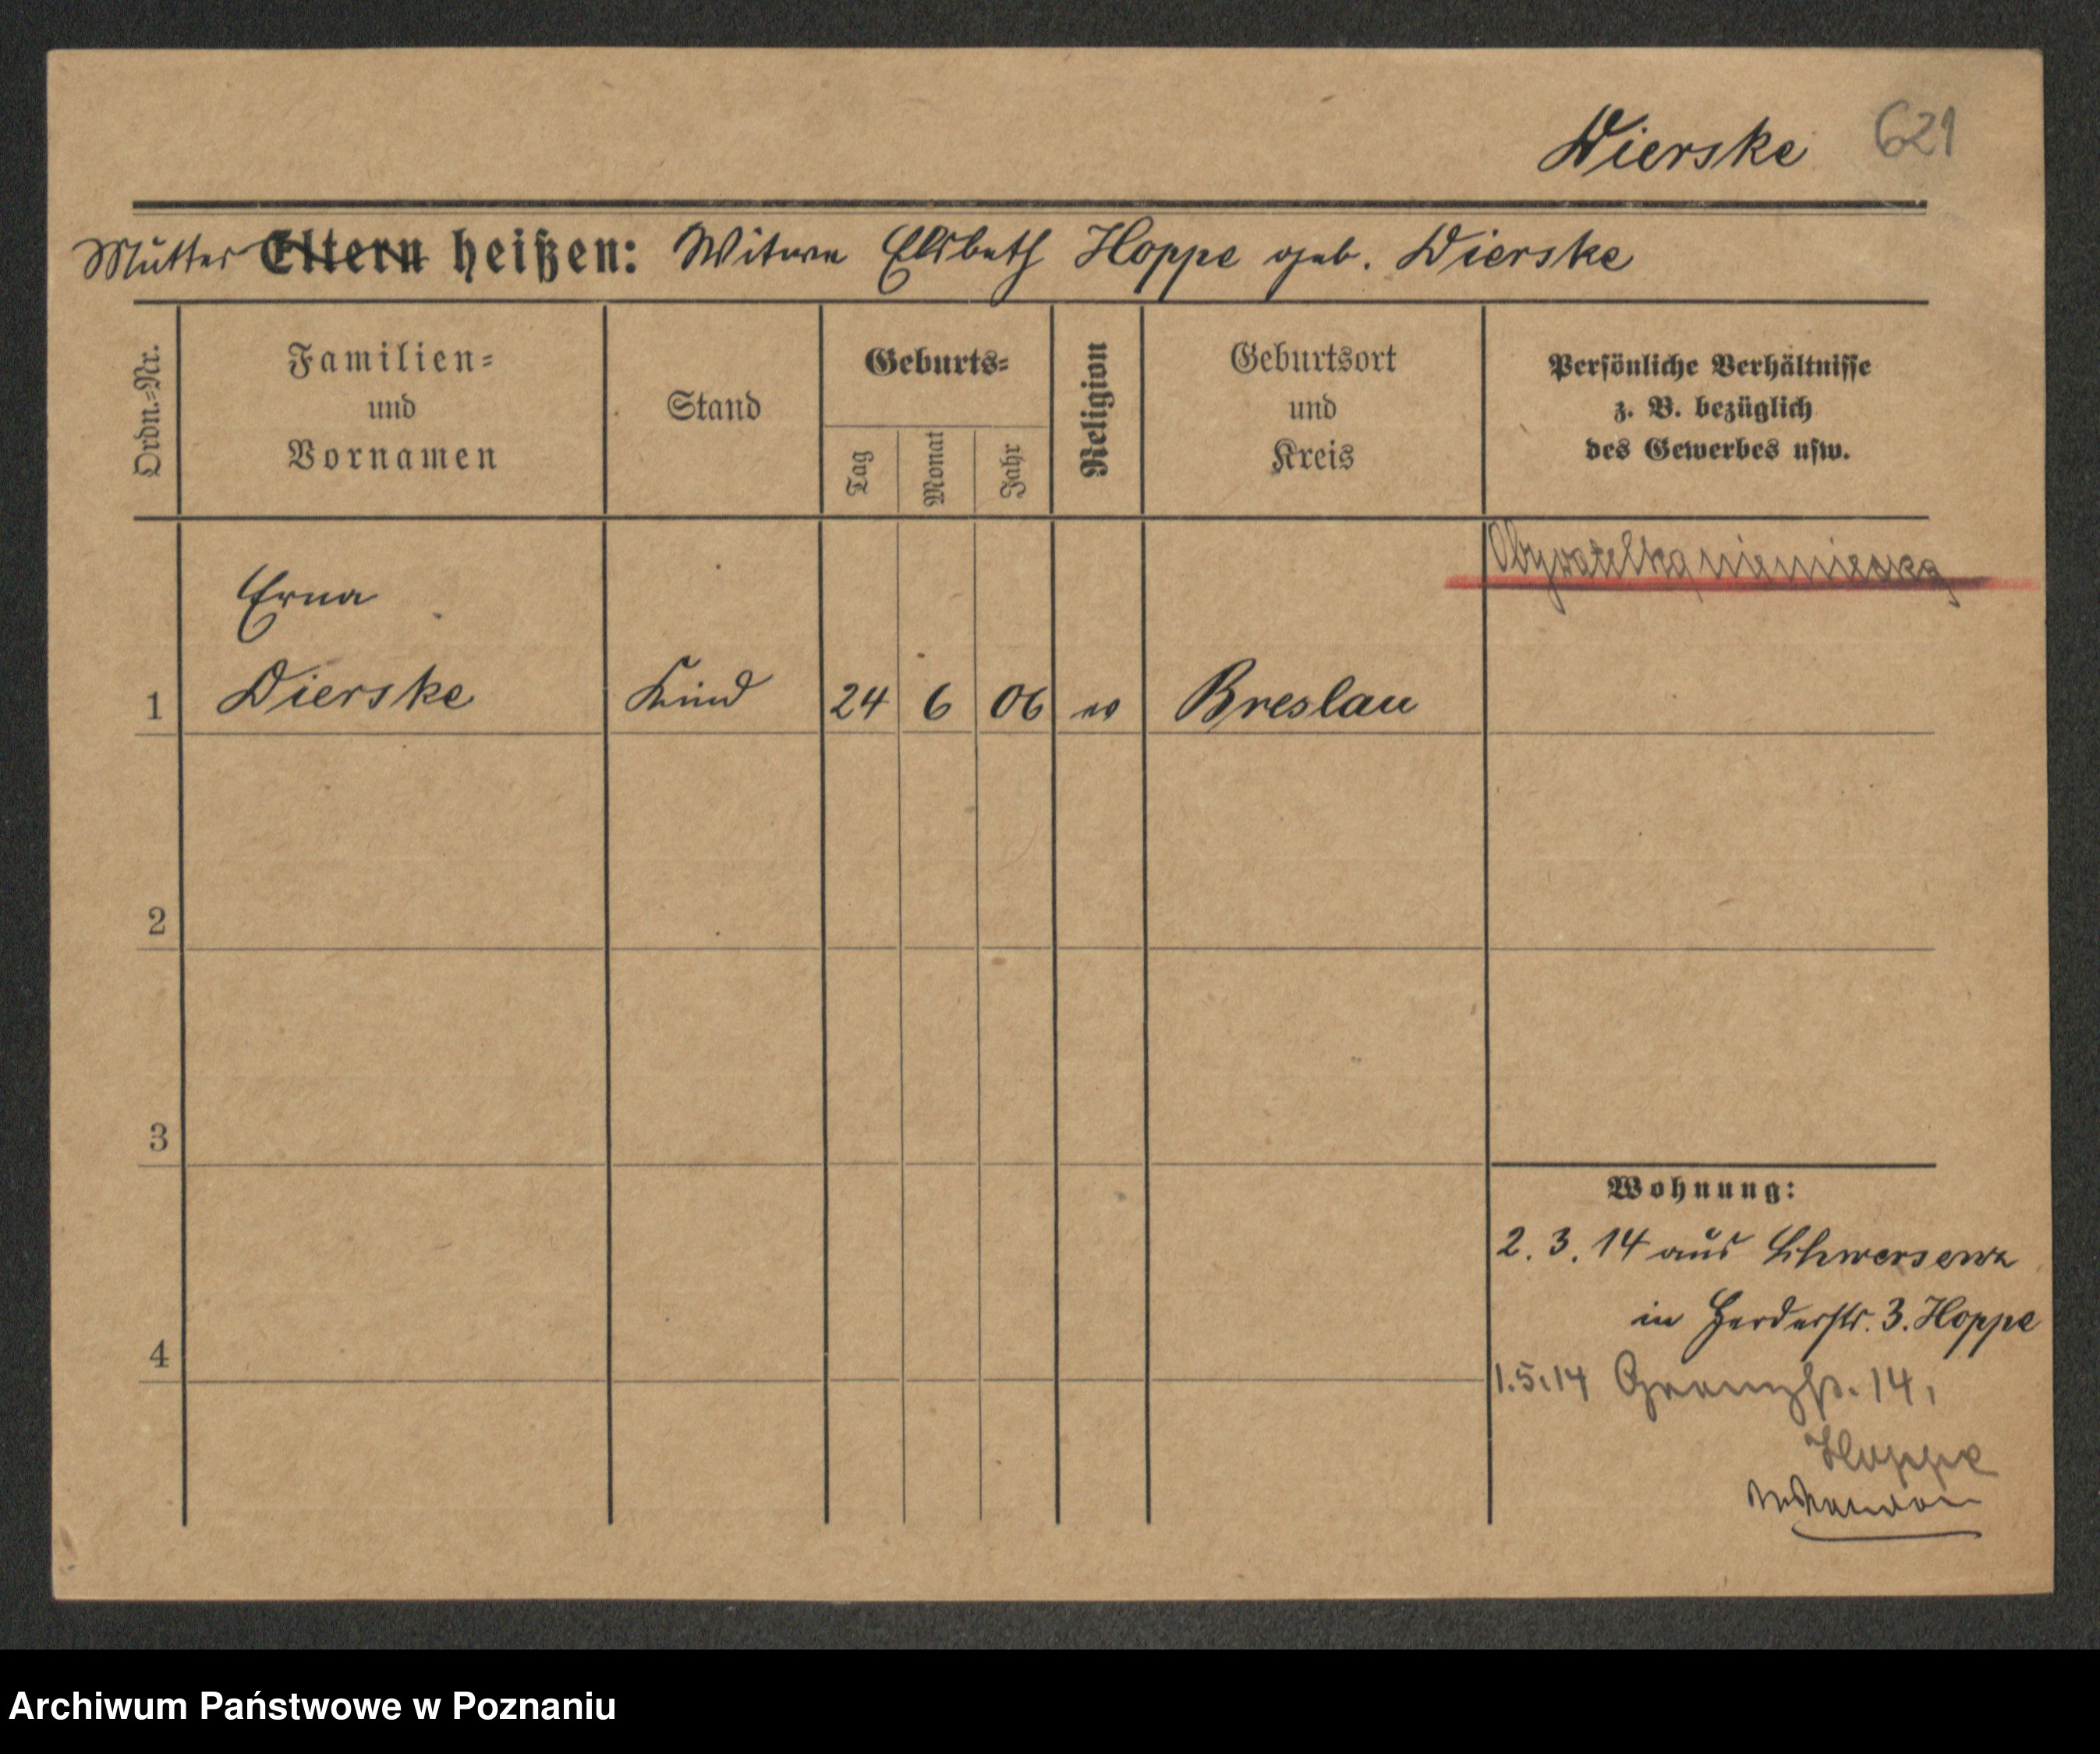 Dierske 621
Mutter Eltern heißen: Witwe Elsbeth Hoppe geb. Dierske
Ordn.=Nr.
Familien=
und
Vornamen
Stand
Geburts=
Tag
Monat
Jahr
Religion
Geburtsort
und
Kreis
Persönliche Verhältnisse
z. B. bezüglich
des Gewerbes usw.
Obywatelka niemiecka
Erna
1 Dierske Kind 24 6 06 ev Breslau
2
3
4
Wohnung:
2. 3. 14 aus Schwersenz
in Herderstr. 3. Hoppe
1.5.14 14,
Hoppe
Archiwum Państwowe w Poznaniu